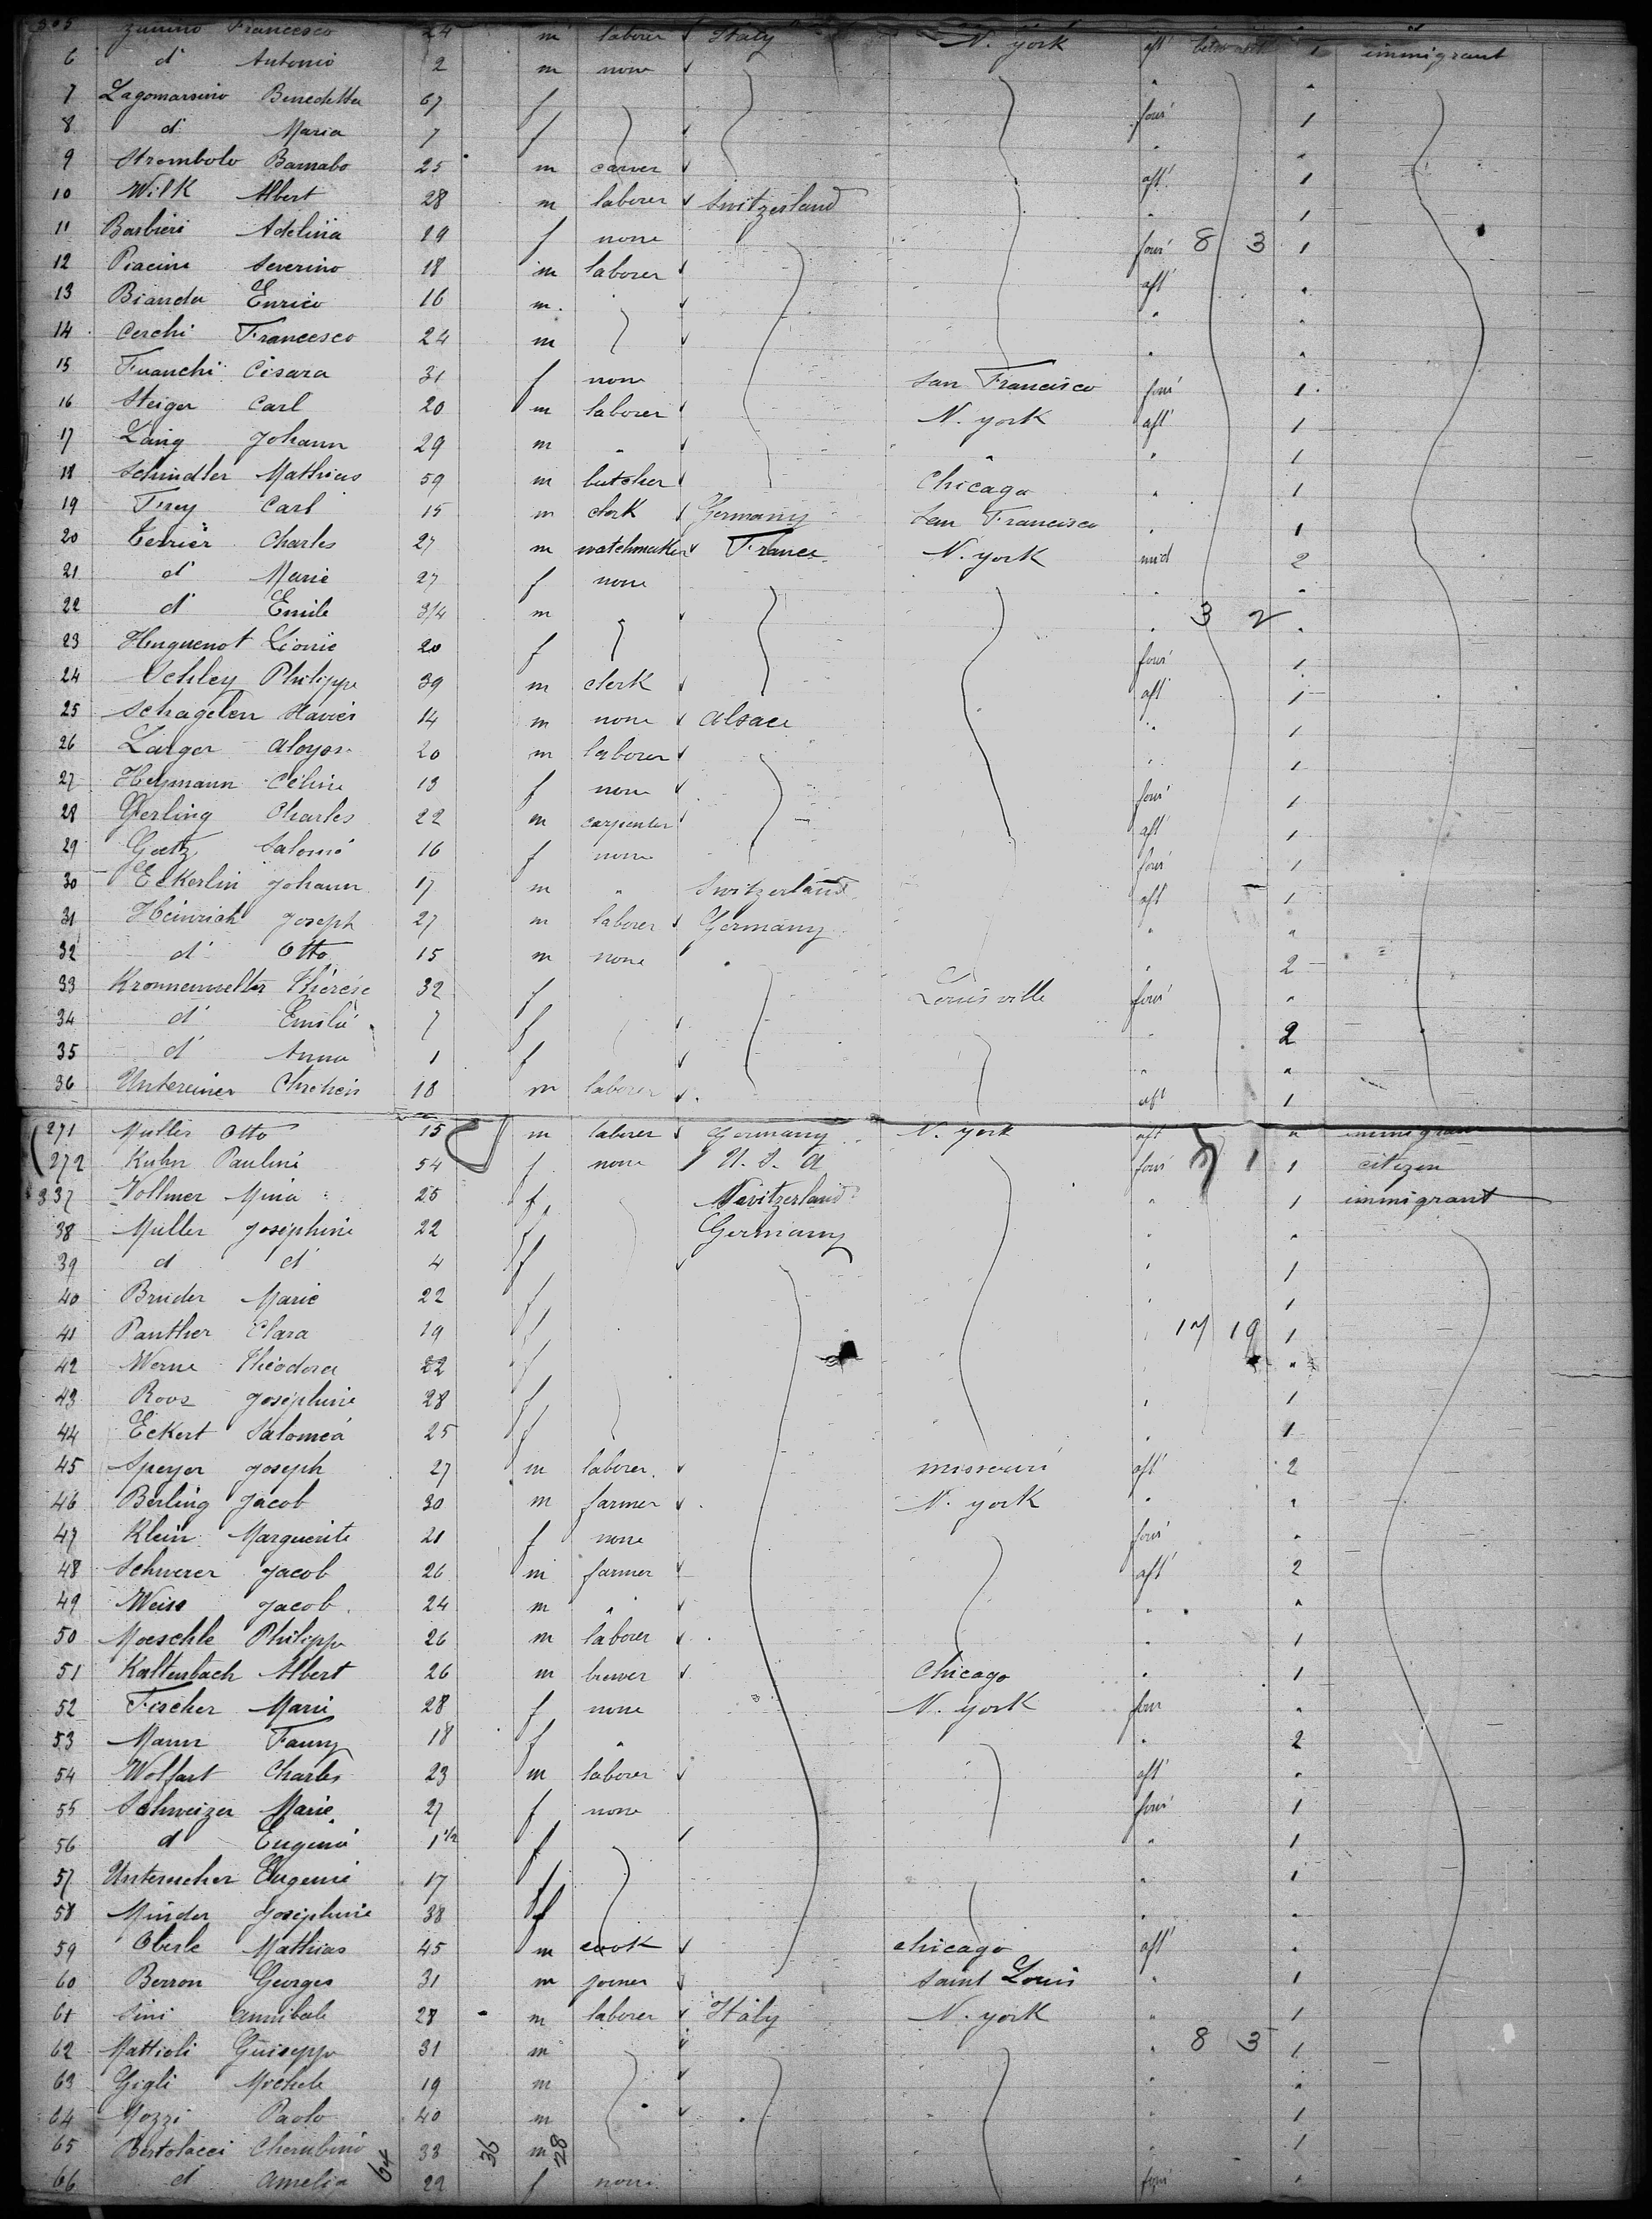 305 Zunino Francesco 24 m laborer ✓ Italy N. york aft' betw deck 1 immigrant
6 d' Antonio 2 m none ✓ "
7 Lagomarsino Benedetta 67 f four' 1
8 d' Maria 7 f ✓ "
9 Strombolo Barnabo 25 m carver ✓ aft' 1
10 Wilk Albert 28 m laborer ✓ Switzerland " 1
11 Barbieri Adelina 19 f none four' 8 3 1
12 Piacini Severino 18 m laborer ✓ aft' "
13 Bianda Enrico 16 m. ✓ " "
14 Cerchi Francesco 24 m ✓ " "
15 Fuanchi Cesara 31 f none San Francisco four' 1
16 Steiger Carl 20 m laborer ✓ N. york aft' 1
17 Lang Johann 29 m " ✓ " " 1
18 Schindler Mathias 59 m butcher ✓ Chicago " 1
19 Frey Carl 15 m clerk ✓ Germany San Francisco " 1
20 Terrier Charles 27 m watchmaker ✓ France N. york mid 2
21 d' Marie 27 f none " "
22 d' Emile 3/4 m " ✓ " 3 2 "
23 Huguenot Léonie 20 f four' 1
24 Schley Philippe 39 m clerk ✓ aft' 1
25 Schagelen Xavier 14 m none ✓ alsace " 1
26 Larger Aloyse 20 m laborer ✓ " 1
27 Heymann Céline 13 f none ✓ four' 1
28 Gerling Charles 22 m carpenter ✓ aft' 1
29 Goetz Salomé 16 f none four' 1
30 Eckerlin Johann 17 m " Switzerland aft' 1
31 Heinrich Joseph 27 m laborer ✓ Germany " "
32 d' Otto 15 m none " 2
33 Kronnenwetter Thérèse 32 f Louisville four' "
34 d' Emilie 7 f ✓ " 2
35 d' Anna 1 f ✓ " "
36 Untereiner 18 m laborer ✓ aft 1
271 Muller Otto 15 m laborer ✓ Germany N. york aft " immigrant
272 Kuhn Pauline 54 f none U. S. A four' 1 1 citizen
337 Vollmer Mina 25 f Switzerland " 1 immigrant
38 Muller Joséphine 22 f Germany " "
39 d d' 4 f ✓ " 1
40 Bruder Marie 22 f " 1
41 Panther Clara 19 f " 17 19 1
42 Werne Théodora 22 f "
43 Roos Joséphine 28 f " 1
44 Eckert Saloméa 25 f " 1
45 Speyer Joseph 27 m laborer ✓ missouri aft' 2
46 Berling Jacob 30 m farmer ✓ N. york " "
47 Klein Marguerite 21 f none four' "
48 Schwerer Jacob 26 m farmer ✓ aft' 2
49 Weiss Jacob 24 m " ✓ " "
50 Moeschle Philippe 26 m laborer ✓ " 1
51 Kaltenbach Albert 26 m brewer ✓ Chicago " 1
52 Fischer Marie 28 f none N. york four "
53 Mann Fanny 18 f " " 2
54 Wolfart Charles 23 m laborer ✓ aft' "
55 Schweizer Marie 27 f none four' 1
56 d' Eugénie 1 1/2 f ✓ " 1
57 Unterescher Eugenie 17 f " 1
58 Minder Joséphine 38 f " "
59 Oberle Mathias 45 m cook ✓ chicago aft' "
60 Berron Georges 31 m joiner ✓ Saint Louis " 1
61 Sini Annibale 28 m laborer ✓ Italy N. york " 1
62 Mattioli Guiseppe 31 m ✓ " 8 3 1
63 Gigli Michele 19 m ✓ " "
64 Mozzi Paolo 40 m ✓ " 1
65 Bertolacci Cherubino 33 m " 1
66 d' Amelia 22 f none four' "
64 36 28